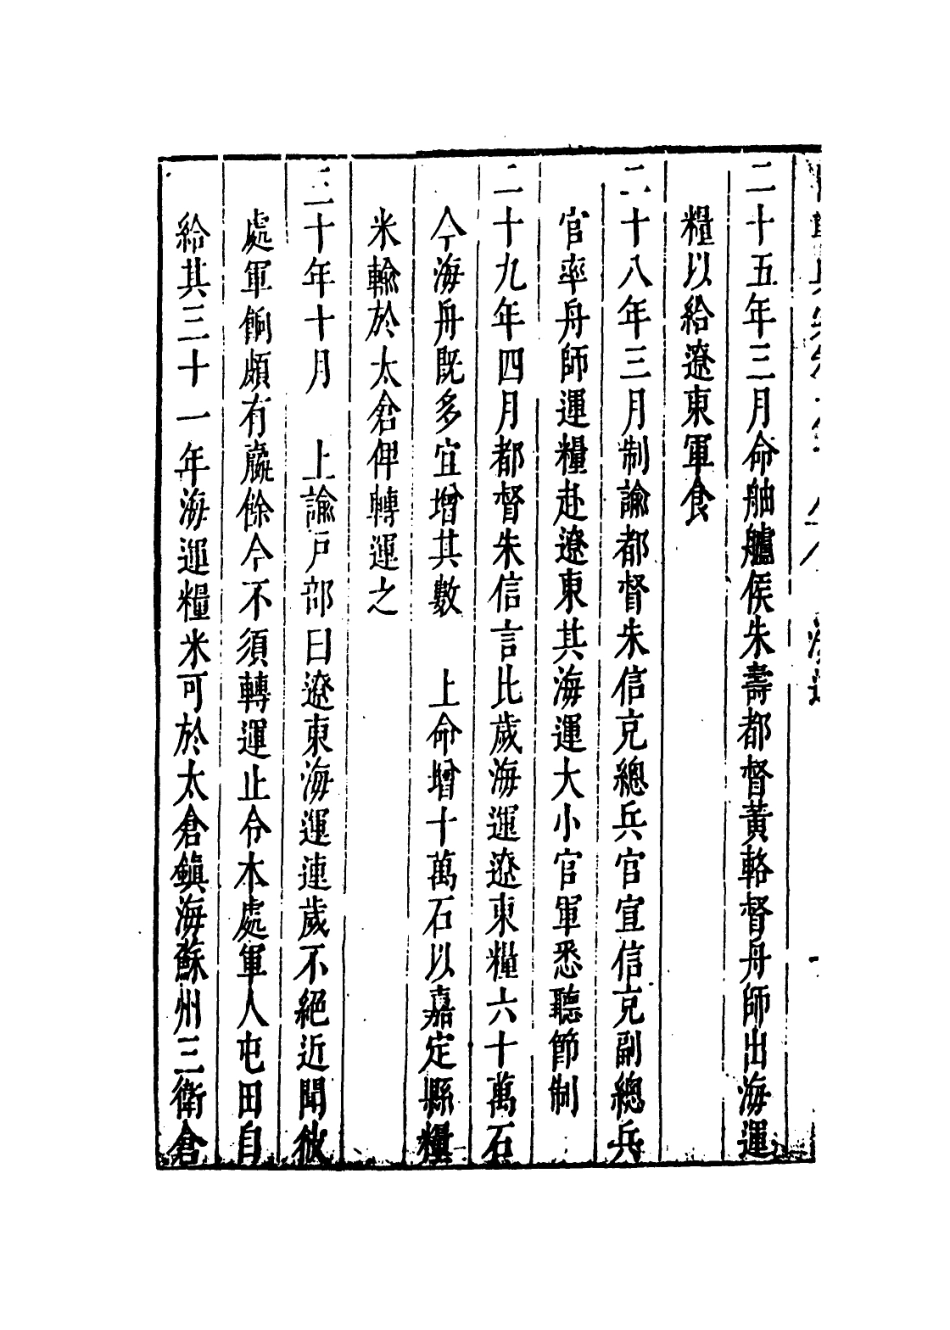 二十五年三月命舳艫侯朱壽都督黃輅督舟師出海運
糧以給遼東軍食
二十八年三月制諭都督朱信充總兵官宣信充副總兵
官率舟師運糧赴遼東其海運大小官軍悉聽節制
二十九年四月都督朱信言比歲海運遼東糧六十萬石
今海舟既多宜增其數　上命增十萬石以嘉定縣糧
米輸於太倉俾轉運之
三十年十月　上諭戶部曰遼東海運連歲不絕近聞彼
處軍餉頗有贏餘今不須轉運止令本處軍人屯田自
給其三十一年海運糧米可於太倉鎮海蘇州三衛倉